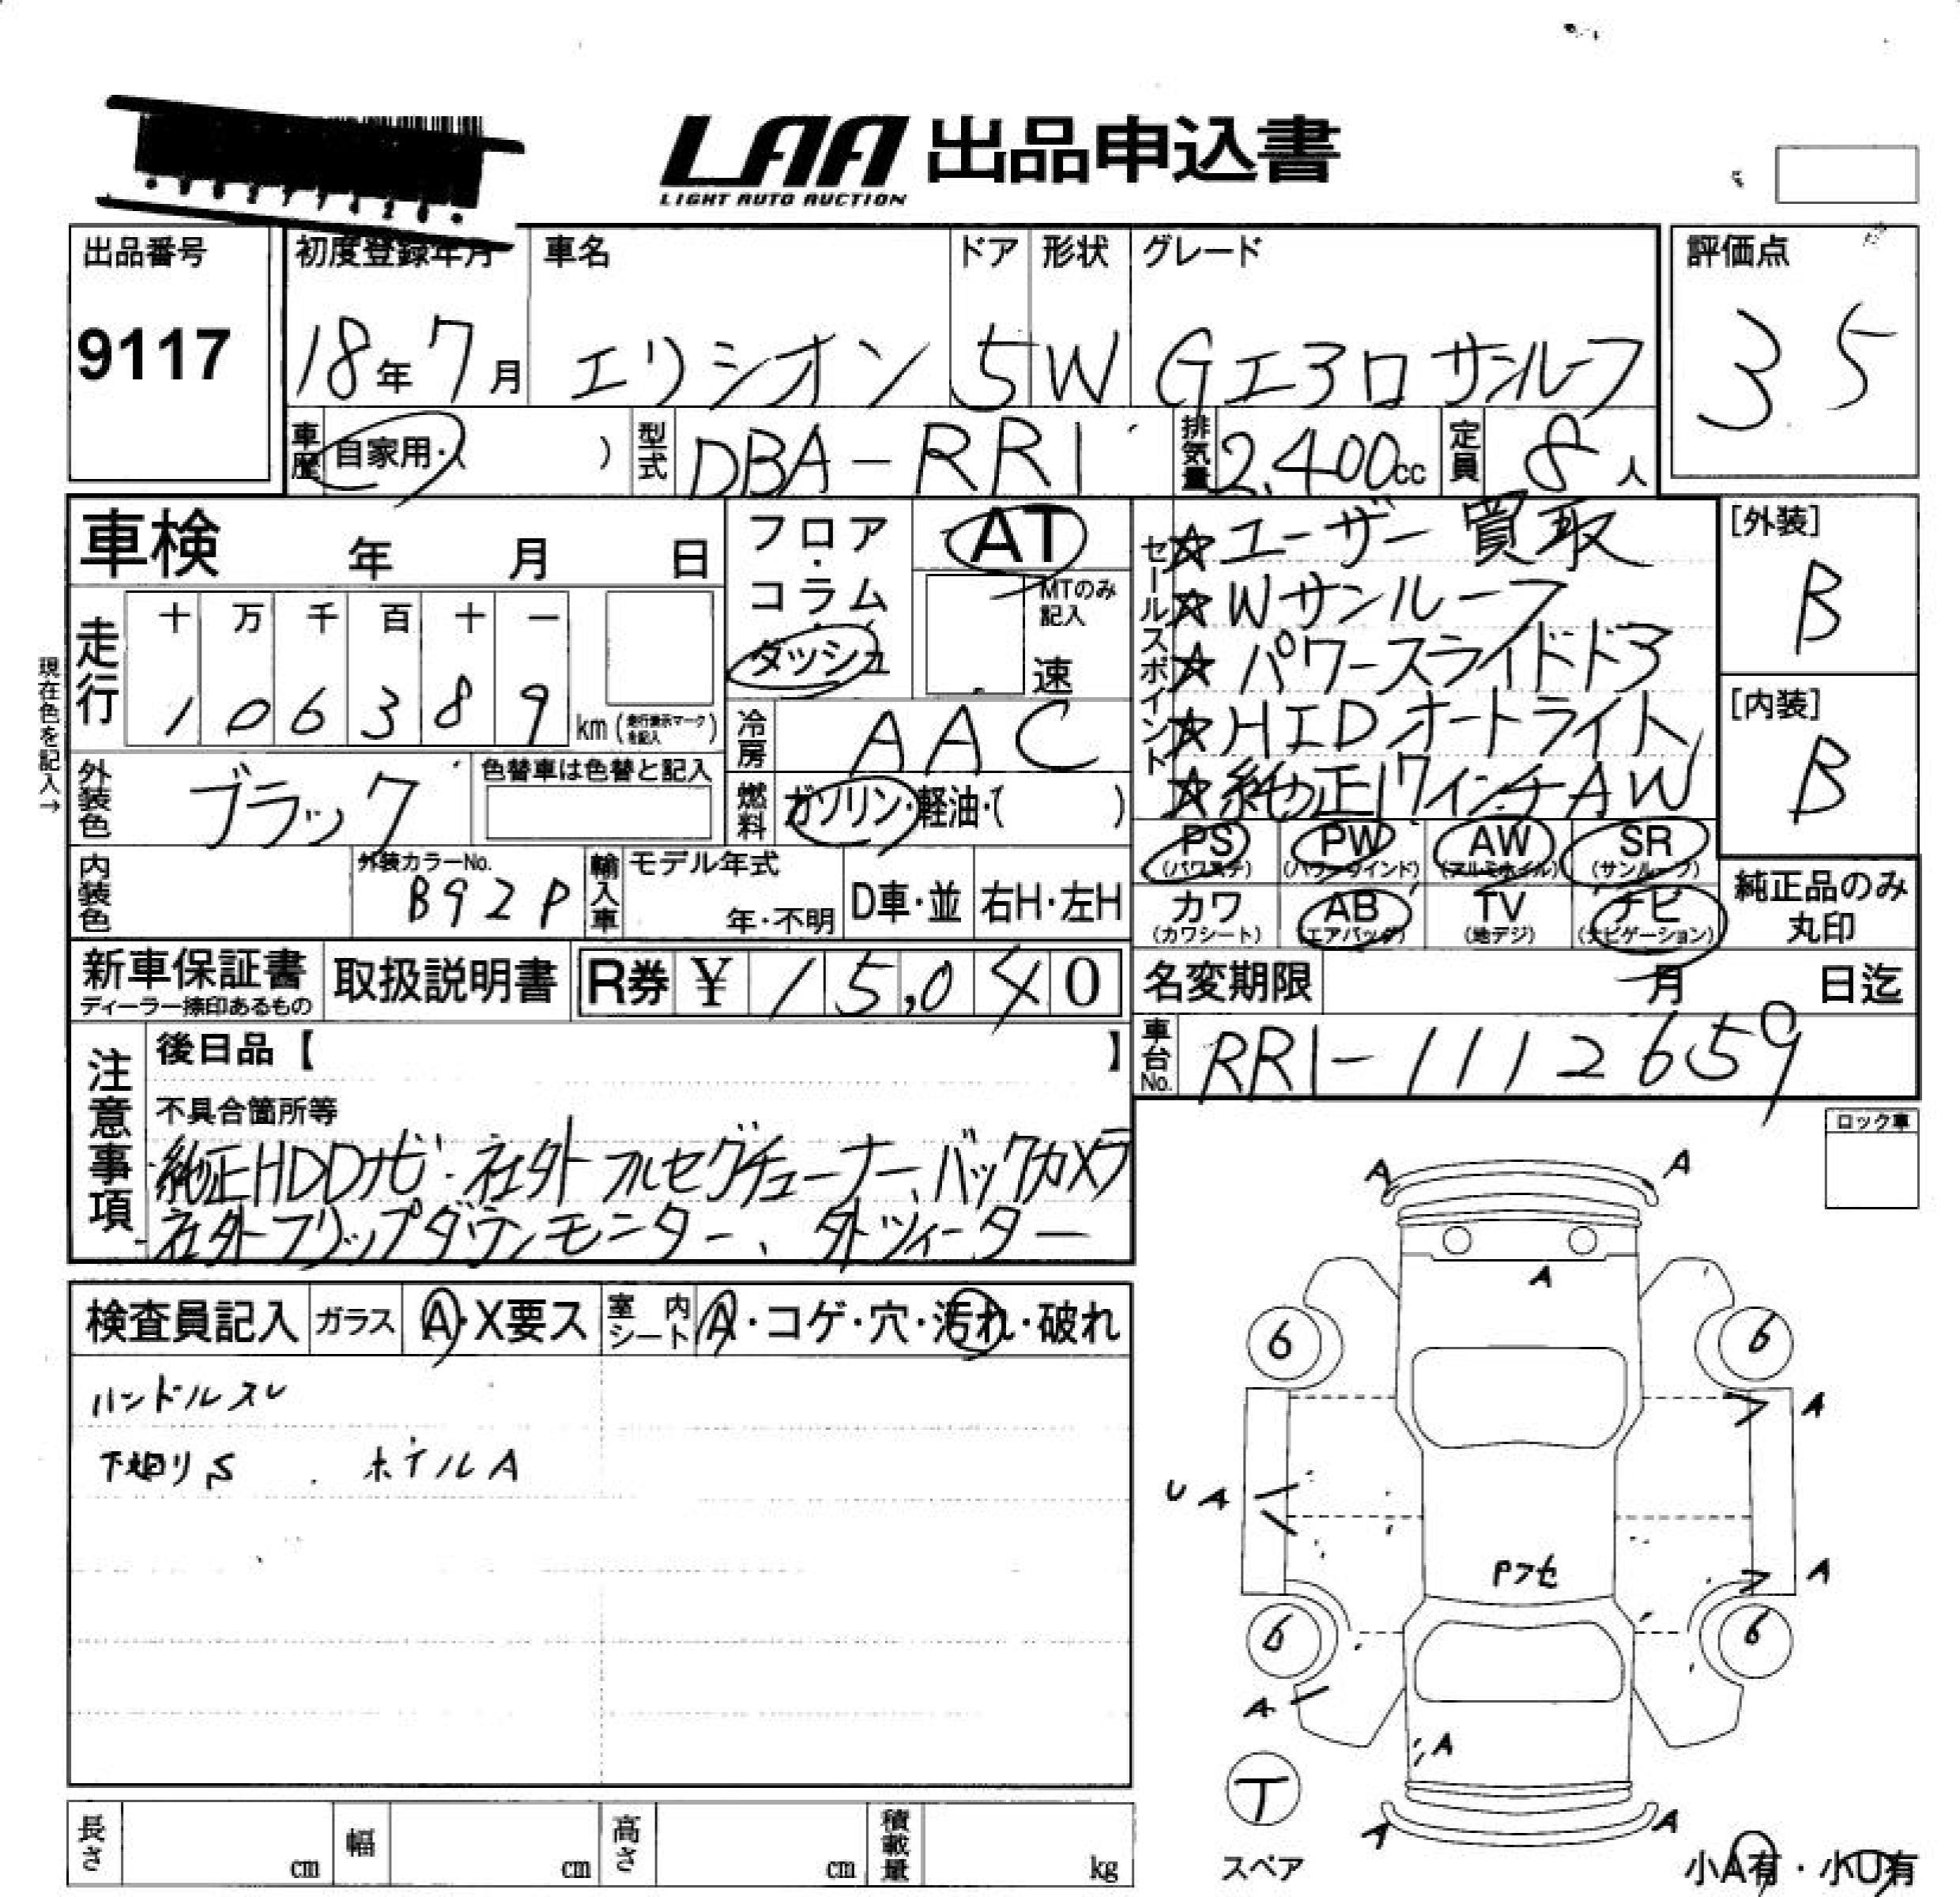 LAA 出品申込書
LIGHT AUTO AUCTION
出品番号 初度登録年月 車名 ドア 形状 グレード 評価点
9117 18年 7月 エリシオン 5 W Gエアロ サンルーフ 3.5
車歴 自家用・( ) 型式 DBA-RR1 排気量 2,400cc 定員 8人
車検 年 月 日
フロア・コラム・ダッシュ
AT
MTのみ記入
速
セールスポイント
☆ユーザー買取
☆Wサンルーフ
☆パワースライドドア
☆HIDオートライト
☆純正17インチAW
[外装]
B
[内装]
B
現在色を記入→
走行 十 万 千 百 十 一
1 0 6 3 8 9 km (走行表示マークを記入)
冷房 AAC
外装色 ブラック 色替車は色替と記入
燃料 ガソリン・軽油・( )
PS PW AW SR
(パワステ) (パワーウインド) (アルミホイル) (サンルーフ)
カワ AB TV ナビ
(カワシート) (エアバッグ) (地デジ) (ナビゲーション)
純正品のみ
丸印
内装色 外装カラーNo. B92P 輸入車 モデル年式 年・不明 D車・並 右H・左H
新車保証書 取扱説明書 R券 ¥ 15,040 名変期限 月 日迄
ディーラー捺印あるもの
車台No. RR1-1112659
注意事項
後日品【 】
不具合箇所等
純正HDDナビ・社外フルセグチューナー、バックカメラ
社外フリップダウンモニター、外ツィーター
ロック車
検査員記入 ガラス A・X要ス 室内シート A・コゲ・穴・汚れ・破れ
ハンドルスレ
下廻りS ホイルA
A A
A
6 6
A
U A
Pフセ
A
6 6
A
A
T
A A
スペア
小A有・小U有
長さ cm 幅 cm 高さ cm 積載量 kg